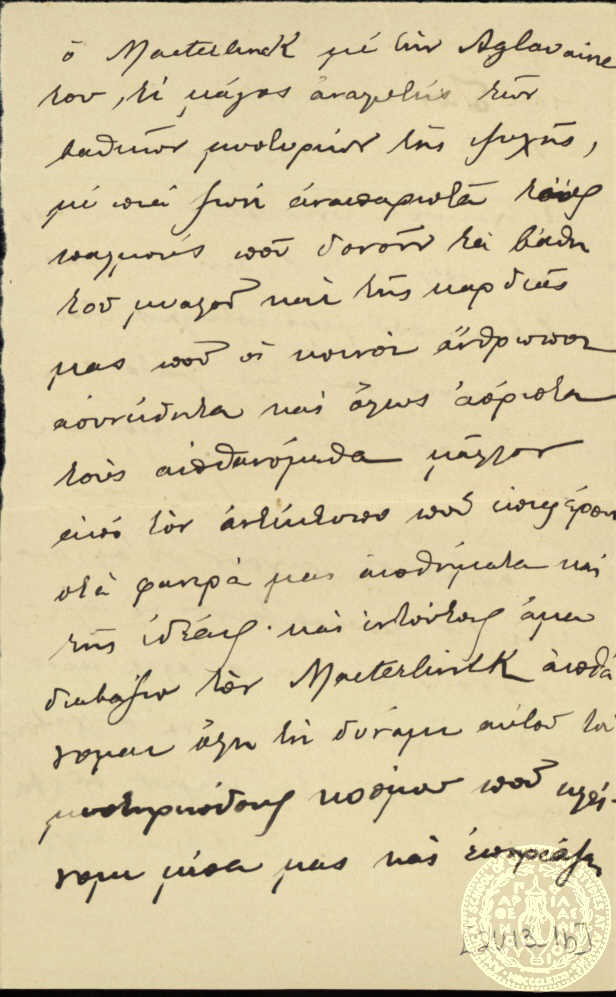 ὁ Maeterlinck μὲ τὴν Aglavaine
του, τί μάγος ἀναλυτής τῶν
βαθειῶν μυστηρίων τῆς ψυχῆς,
μὲ ποιὰ ζωὴ ἀναπαριστᾶ τοὺς
παλμοὺς ποῦ δονοῦν τὰ βάθη
τοῦ μυαλοῦ καὶ τῆς καρδιᾶς
μας ποῦ οἱ κοινοὶ ἄνθρωποι
ἀσυνείδητα καὶ ὅλως ἀόριστα
τοὺς αἰσθανόμεθα μᾶλλον
ἀπὸ τὸν ἀντίκτυπο ποῦ
στὰ φανερά μας αἰσθήματα καὶ
τῆς ἰδέαις. καὶ ἐντούτοις ἅμα
διαβάζω τὸν Maeterlinck αἰσθά
νομαι ὅλη τὴ δύναμι αὐτοῦ τοῦ
μυστηριώδους κόσμου ποῦ κλεί-
νομε μέσα μας καὶ ἐπηρεάζει